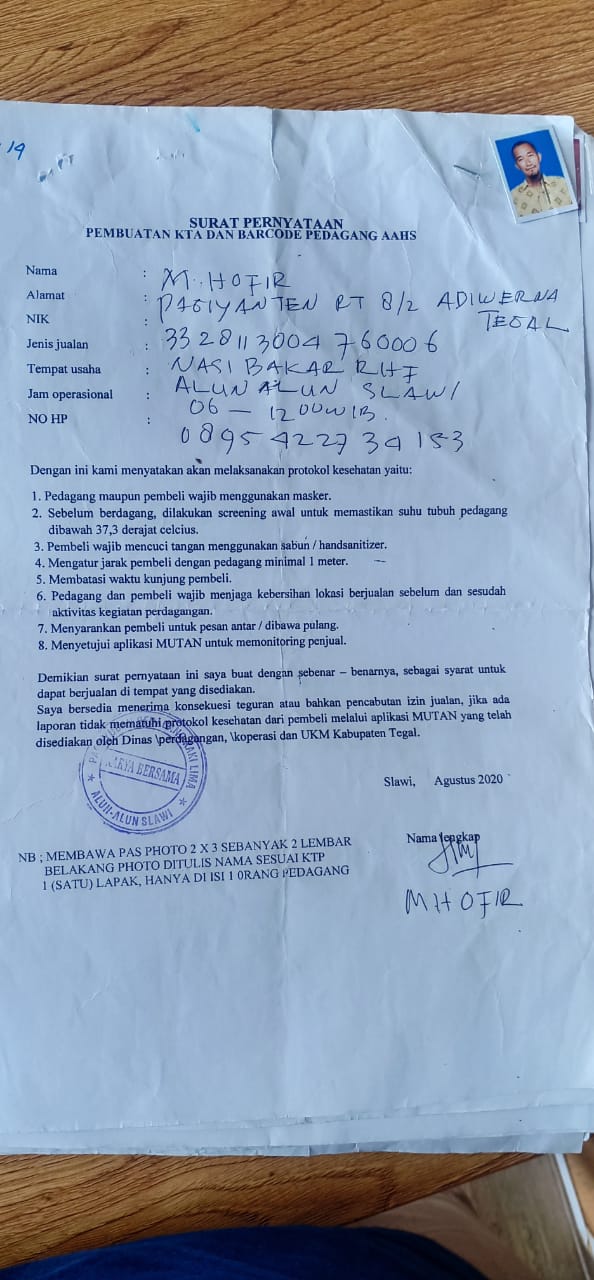 19
SURAT PERNYATAAN
PEMBUATAN KTA DAN BARCODE PEDAGANG AAHS
Nama : M. HOFIR
Alamat : PAGIYANTEN RT 8/2 ADIWERNA
TEGAL
NIK : 3328113004760006
Jenis jualan : NASI BAKAR
Tempat usaha : ALUN ALUN SLAWI
Jam operasional : 06 - 12 00 WIB.
NO HP : 0895422734153
Dengan ini kami menyatakan akan melaksanakan protokol kesehatan yaitu:
1. Pedagang maupun pembeli wajib menggunakan masker.
2. Sebelum berdagang, dilakukan screening awal untuk memastikan suhu tubuh pedagang
dibawah 37,3 derajat celcius.
3. Pembeli wajib mencuci tangan menggunakan sabun / handsanitizer.
4. Mengatur jarak pembeli dengan pedagang minimal 1 meter.
5. Membatasi waktu kunjung pembeli.
6. Pedagang dan pembeli wajib menjaga kebersihan lokasi berjualan sebelum dan sesudah
aktivitas kegiatan perdagangan.
7. Menyarankan pembeli untuk pesan antar / dibawa pulang.
8. Menyetujui aplikasi MUTAN untuk memonitoring penjual.
Demikian surat pernyataan ini saya buat dengan sebenar – benarnya, sebagai syarat untuk
dapat berjualan di tempat yang disediakan.
Saya bersedia menerima konsekuesi teguran atau bahkan pencabutan izin jualan, jika ada
laporan tidak mematuhi protokol kesehatan dari pembeli melalui aplikasi MUTAN yang telah
disediakan oleh Dinas \perdagangan, \koperasi dan UKM Kabupaten Tegal.
KARYA BERSAMA
KAKI LIMA
ALUN-ALUN SLAWI
Slawi, Agustus 2020
Nama lengkap
M HOFIR
NB ; MEMBAWA PAS PHOTO 2 X 3 SEBANYAK 2 LEMBAR
BELAKANG PHOTO DITULIS NAMA SESUAI KTP
1 (SATU) LAPAK, HANYA DI ISI 1 0RANG PEDAGANG